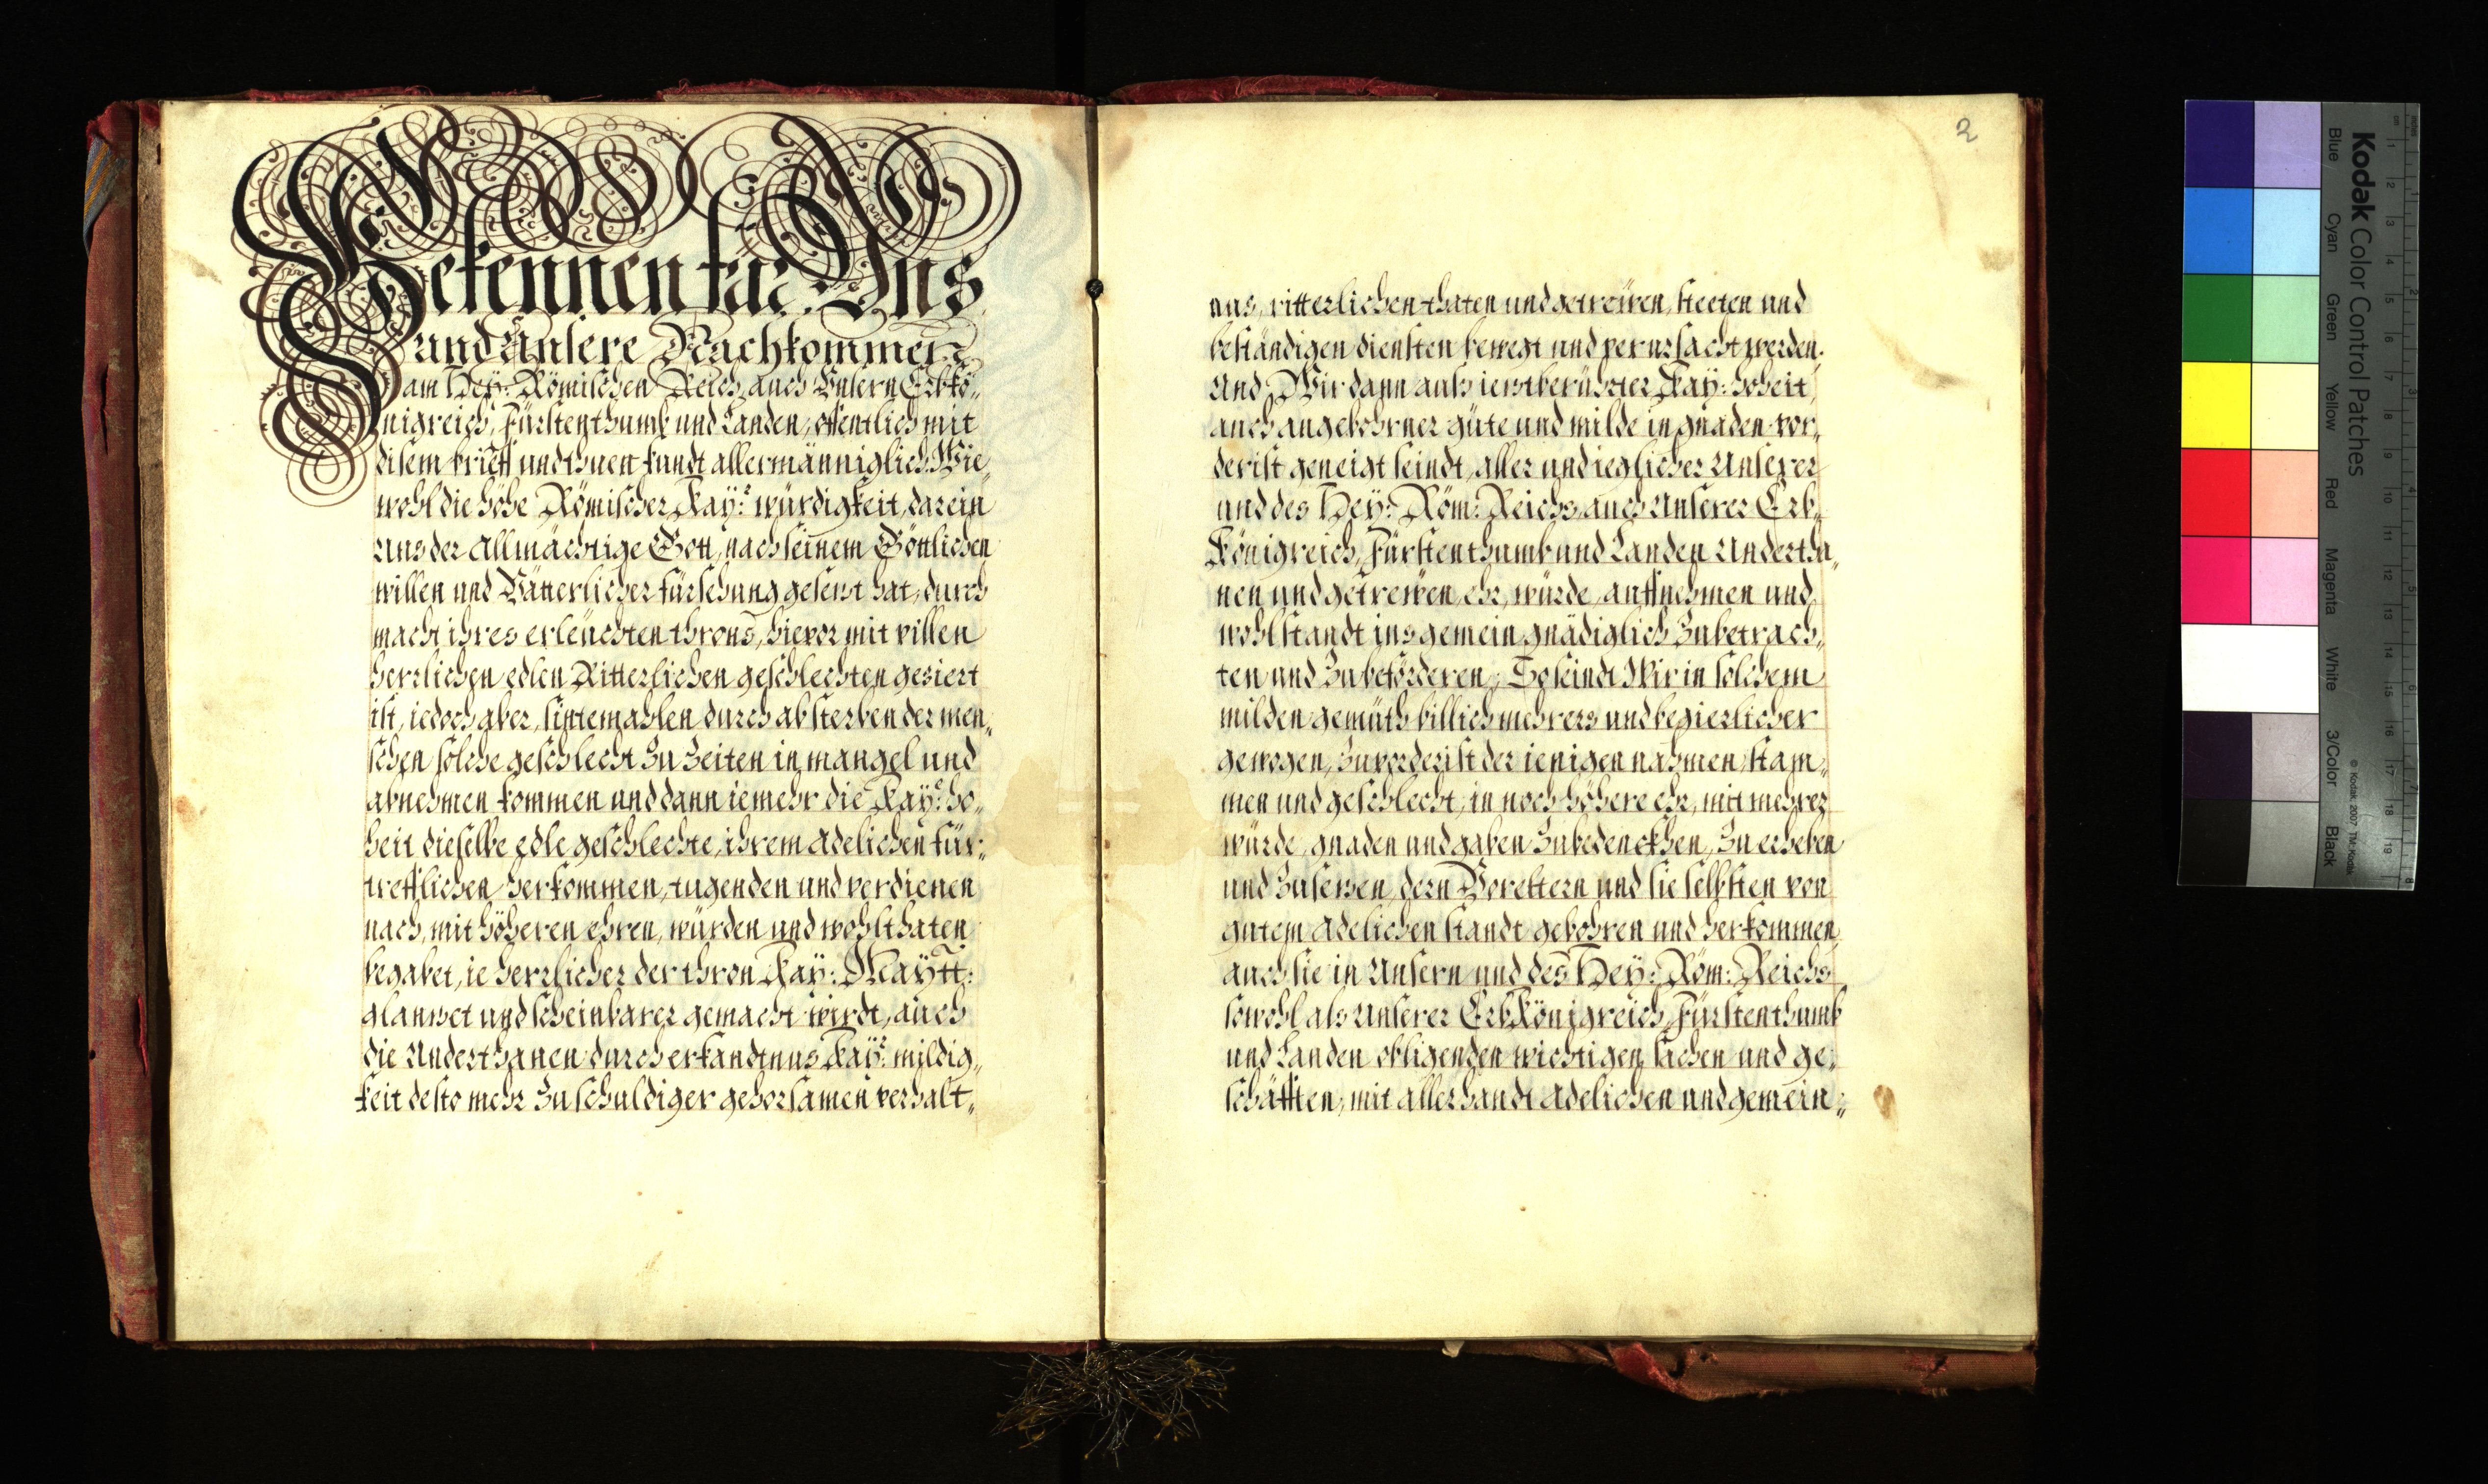 Bekennen für Uns
und Unsere Nachkommen
am Hey: Römischen Reich, auch Unsern Erbkö„
nigreich, Fürstenthumb und Landen, offentlich mit
disem brieff und thuen kundt allermänniglich. Wie„
wohl die höhe Römischer Kay: würdigkeit, darein
Uns der Allmächtige Gott, nach seinem Göttlichen
willen und Vätterlicher fürsehung gesetzt hat, durch
macht ihres erleüchten throns, hievor mit villen
herrlichen edlen Ritterlichen geschlechten geziert
ist, iedoch aber, sintemahlen durch absterben der men„
schen solche geschlecht zu zeiten in mangel und
abnehmen kommen und dann iemehr die Kay: ho„
heit dieselbe edle geschlechte, ihrem Adelichen für„
trefflichen herkommen, tugenden und verdienen
nach, mit höheren ehren, würden und wohlthaten
begabet, ie herrlicher der thron Kay: Maytt:
glantzet und scheinbarer gemacht wirdt, auch
die Underthanen durch erkandtnus Kay: mildig„
keit desto mehr zu schuldiger gehorsamen verhalt„
2
nus, ritterlichen thaten und getreüen, steeten und
beständigen diensten bewegt und verursacht werden.
Und Wir dann auß ietztberührter Kay: hoheit,
auch angebohrner güte und milde in gnaden vor„
derist geneigt seindt, aller und ieglicher Unserer
und des Hey: Röm: Reichs, auch Unserer Erb„
Königreich, Fürstenthumb und Landen Undertha„
nen und getrewen, ehr, würde, auffnehmen und
wohlstandt ins gemein gnädiglich zu betrach„
ten und zubefürderen, So seindt Wir in solchem
milden gemüth billich mehrers und begierlicher
gewogen, zuvorderist der ienigen nahmen, stam„
men und geschlecht, in noch höhere ehr, mit mehrer
würde, gnaden und gaben zubedenckhen, zu erheben
und zusetzen, dern Voreltern und sie selbsten von
gutem Adelichen standt gebohren und herkommen,
auch sie in Unsern und des Hey: Röm: Reichs
sowohl als Unserer Erb Königreich, Fürstenthumb
und Landen obligenden wichtigen sachen und ge„
schäfften, mit allerhandt Adelichen und gemein„
Kodak Color Control Patches
Blue
Cyan
Green
Yellow
Red
Magenta
White
3/Color
Black
© Kodak 2007 TM: Kodak
cm 1 2 3 4 5 6 7 8 9 10 11 12 13 14 15 16 17 18 19
inches 1 2 3 4 5 6 7 8